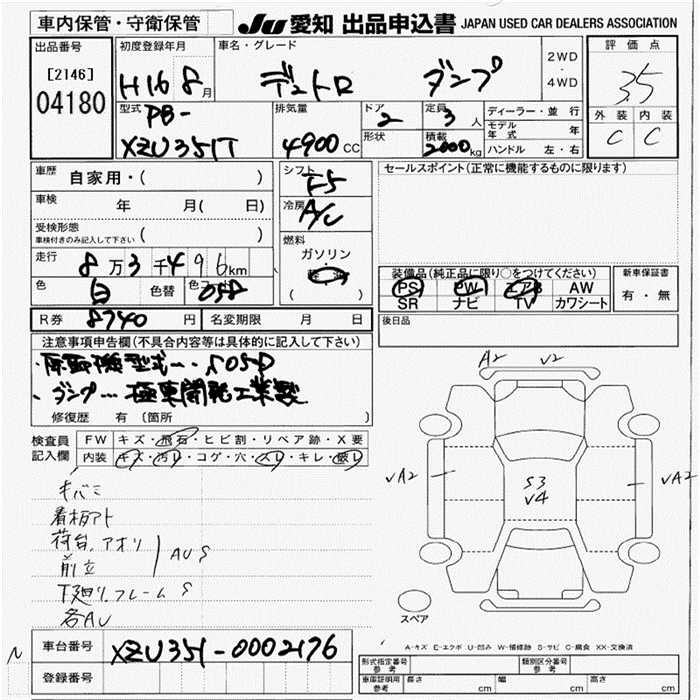 車内保管・守衛保管
JU 愛知 出品申込書 JAPAN USED CAR DEALERS ASSOCIATION
出品番号
[2146]
04180
初度登録年月
H16 8月
車名・グレード
デュトロ ダンプ
2WD
・
4WD
評価点
3.5
外装 内装
C C
型式
PB-
XZU351T
排気量
4900cc
ドア
2
定員
3人
形状
積載
2000kg
ディーラー・並行
モデル年式 年
ハンドル 左・右
車歴 自家用・( )
車検 年 月( 日)
受検形態
車検付きのみ記入して下さい ( )
走行 8万3千496km
色 白 色替 色コード 058
シフト
F5
冷房
A/C
燃料
ガソリン
軽油
( )
セールスポイント(正常に機能するものに限ります)
装備品(純正品に限り○をつけてください)
PS PW エアB AW
SR ナビ TV カワシート
新車保証書
有・無
後日品
R券 8740円 名変期限 月 日
注意事項申告欄(不具合内容等は具体的に記入して下さい)
・原動機型式… S05D
・ダンプ… 極東開発工業製
修復歴 有 (箇所
検査員記入欄
FW キズ・飛石・ヒビ割・リペア跡・X要
内装 キズ・汚レ・コゲ・穴・スレ・キレ・破レ
キバミ
看板アト
荷台、アオリ
前立
AUS
下廻り、フレームS
各AU
A2 V2
VA2
S3
V4
VA2
スペア
A-キズ E-エクボ U-凹み W-補修跡 S-サビ C-腐食 XX-交換済
N
車台番号 XZU351-0002176
登録番号
形式指定番号
参考
類別区分番号
参考
車庫証明用
参考
長さ cm 幅 cm 高さ cm